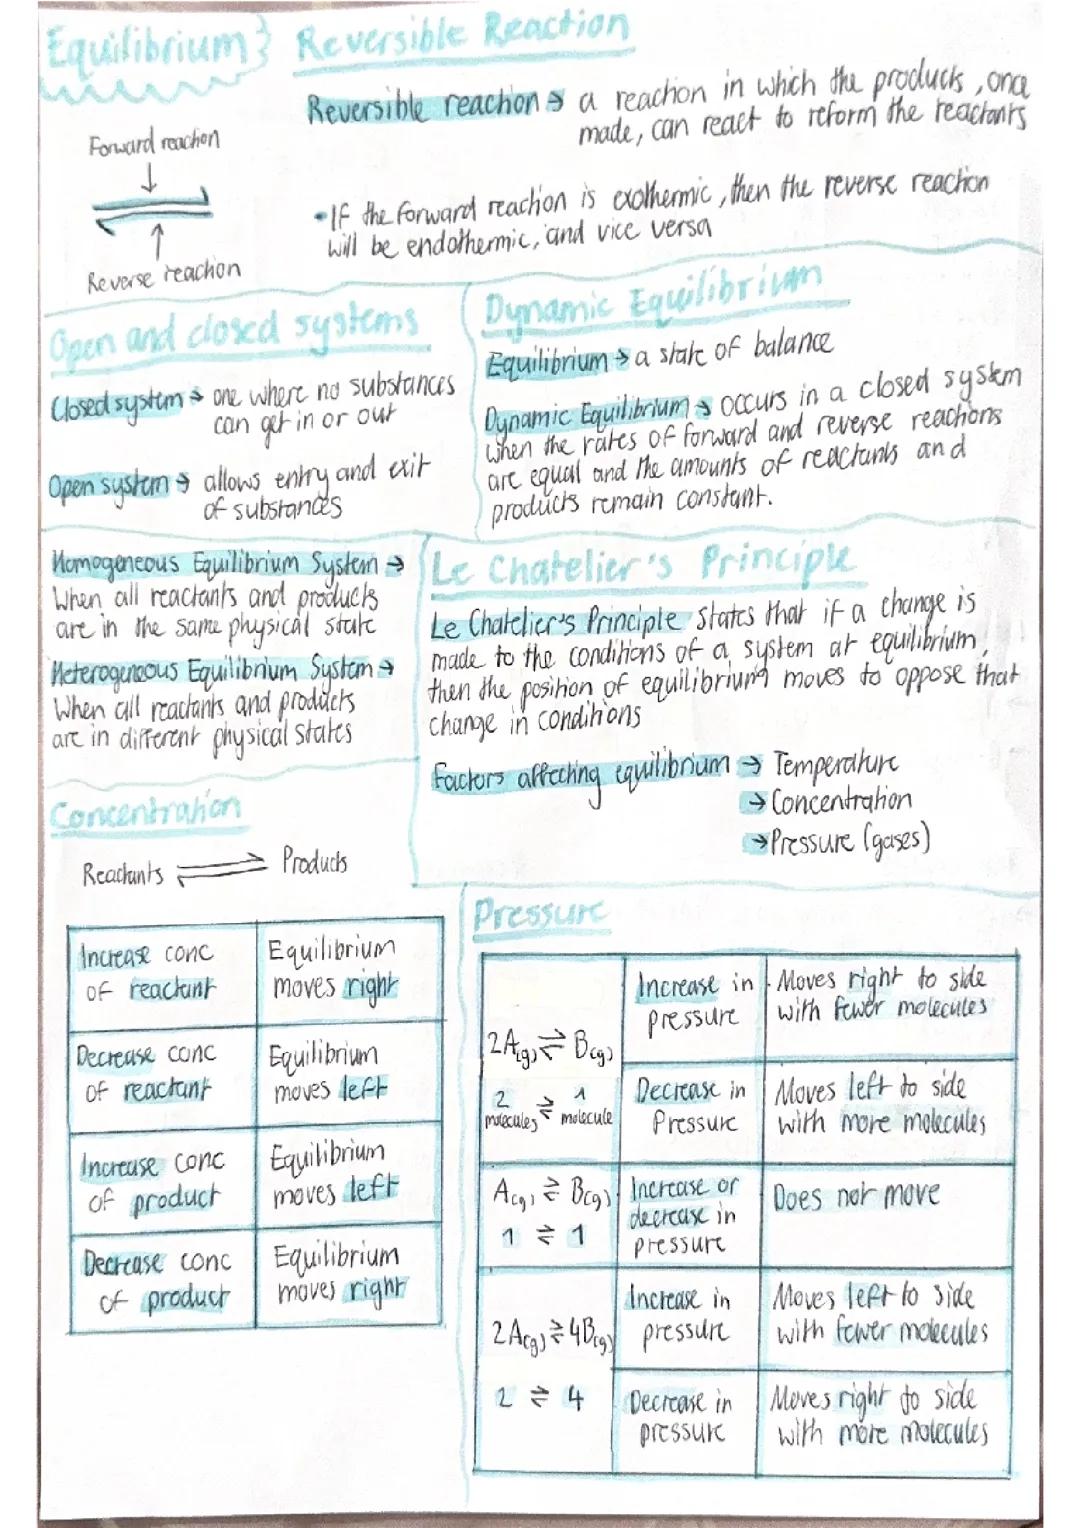 Equilibrium} Reversible Reaction
Reversible reaction → a reaction in which the products, once
made, can react to reform the reactants
Forward reaction
Reverse reaction
•If the forward reaction is exothermic, then the reverse reaction
will be endothermic, and vice versa
Open and closed systems
Closed system → one where no substances
can get in or out
Open system → allows entry and exit
of substances
Dynamic Equilibrium
Equilibrium → a state of balance
Dynamic Equilibrium → occurs in a closed system
when the rates of forward and reverse reactions
are equal and the amounts of reactants and
products remain constant.
Homogeneous Equilibrium System →
When all reactants and products
are in the same physical state
Heterogeneous Equilibrium System →
When all reactants and products
are in different physical states
Le Chatelier's Principle
Le Chatelier's Principle states that if a change is
made to the conditions of a system at equilibrium,
then the position of equilibrium moves to oppose that
change in conditions
Factors affecting equilibrium → Temperature
→ Concentration
→ Pressure (gases)
Concentration
Reactants ⇌ Products
Increase conc
of reactant
Equilibrium
moves right
Decrease conc
of reactant
Equilibrium
moves left
Increase conc
of product
Equilibrium
moves left
Decrease conc
of product
Equilibrium
moves right
Pressure
2A(g) ⇌ B(g)
2 ⇌ 1
molecules molecule
Increase in
pressure
Moves right to side
with fewer molecules
Decrease in
Pressure
Moves left to side
with more molecules
A(g) ⇌ B(g)
1 ⇌ 1
Increase or
decrease in
pressure
Does not move
2A(g) ⇌ 4B(g)
2 ⇌ 4
Increase in
pressure
Moves left to side
with fewer molecules
Decrease in
pressure
Moves right to side
with more molecules